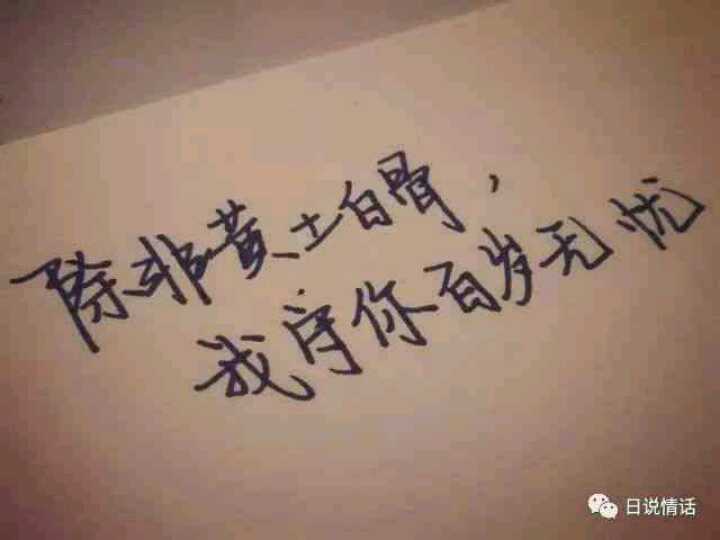 除非黄土白骨，
我守你百岁无忧
日说情话